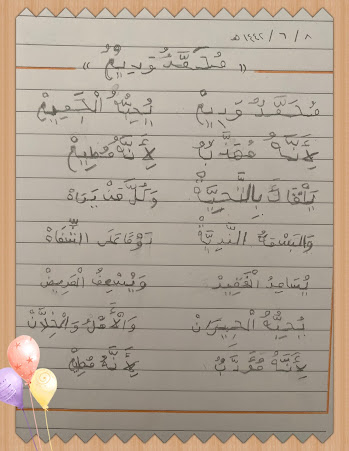 ٨ / ٦ / ١٤٤٢ هـ
« مُحَمَّدٌ وَدِيعٌ »
مُحَمَّدٌ وَدِيعٌ يُحِبُّهُ الْجَمِيعُ
لِأَنَّهُ مُهَذَّبٌ لِأَنَّهُ مُطِيعٌ
يَلْقَاكَ بِالتَّحِيَّةْ وَكُلَّ مَنْ يَرَاهْ
وَالْبَسْمَةُ النَّدِيَّةْ دَوْمًا عَلَى الشِّفَاهْ
يُسَاعِدُ الْفَقِيرْ وَيُسْعِفُ الْمَرِيضْ
يُحِبُّهُ الْجِيرَانْ وَالْأَهْلُ وَالْخِلَّانْ
لِأَنَّهُ مُؤَدَّبٌ لِأَنَّهُ مُطِيعٌ